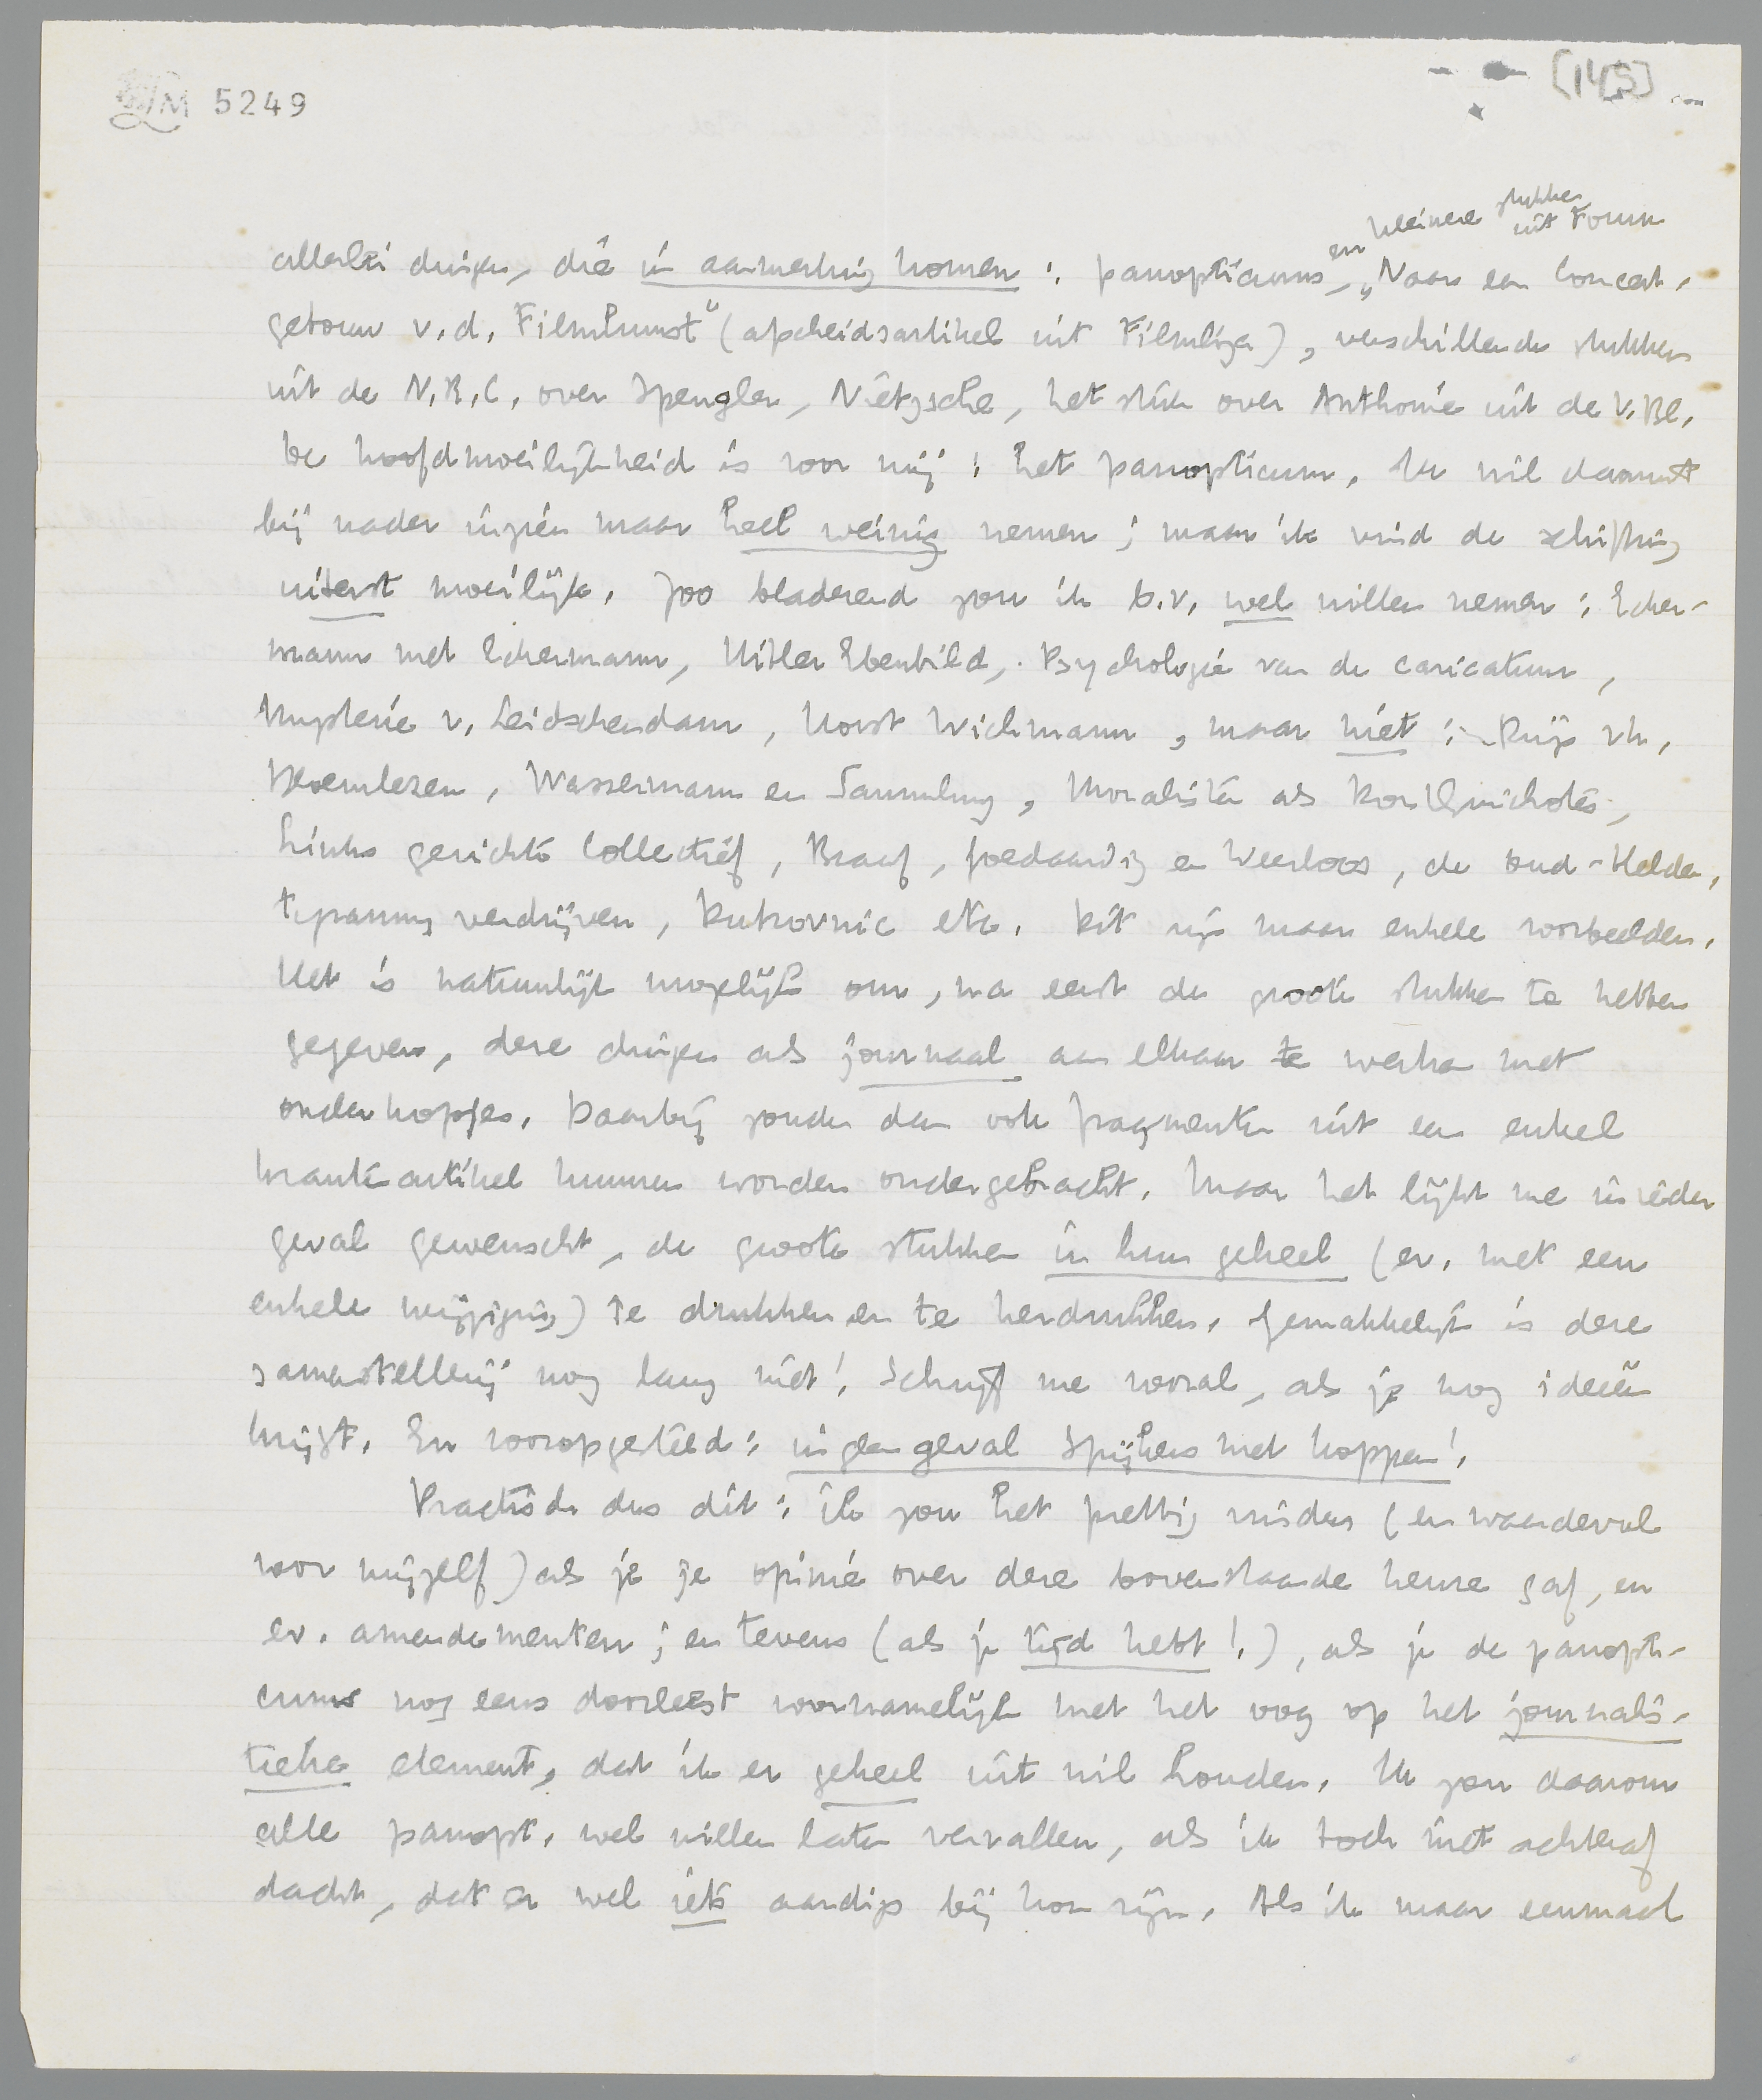 LM 5249
[145]
en kleinere stukken
uit Forum
allerlei dingen, die in aanmerking komen: panopticums, „Naar een Concert-
gebouw v.d. Filmkunst" (afscheidsartikel uit Filmliga), verschillende stukken
uit de N.R.C. over Spengler, Nietzsche, het stuk over Anthonie uit de V.Bl.
De hoofdmoeilijkheid is voor mij: het panopticum. Ik wil daaruit
bij nader inzien maar heel weinig nemen; maar ik vind de schifting
uiterst moeilijk. Zoo bladerend zou ik b.v. wel willen nemen: Ecker-
mann met Eckermann, Hitler Ebenbild, Psychologie van de caricatuur,
Mysterie v. Leidschendam, Horst Wichmann, maar niet: Prijs vh.
Bloemlezen, Wassermann en Sammlung, Moralisten als Don Quichotes,
Links gerichte Collectief, Braaf, Goedaardig en Weerloos, de oud-Helden,
tyranny verdrijven, Putrovnic etc. Dit zijn maar enkele voorbeelden.
Het is natuurlijk mogelijk om, na eerst de groote stukken te hebben
gegeven, deze dingen als journaal aan elkaar te werken met
onderkopjes. Daarbij zouden dan ook fragmenten uit een enkel
krantenartikel kunnen worden ondergebracht. Maar het lijkt me in ieder
geval gewenscht, de groote stukken in hun geheel (ev. met een
enkele wijziging) te drukken en te herdrukken. Gemakkelijk is deze
samenstelling nog lang niet! Schrijf me vooral, als je nog ideeën
krijgt. En vooropgesteld: in geen geval Spijkers met koppen!
Practisch dus dit: ik zou het prettig vinden (en waardevol
voor mijzelf) als je je opinie over deze bovenstaande keuze gaf, en
ev. amendementen; en tevens (als je tijd hebt!), als je de panopti-
cums nog eens doorleest voornamelijk met het oog op het journalis-
tieke element, dat ik er geheel uit wil houden. Ik zou daarom
alle panopt. wel willen laten vervallen, als ik toch niet achteraf
dacht, dat er wel iets aardigs bij kon zijn. Als ik maar eenmaal